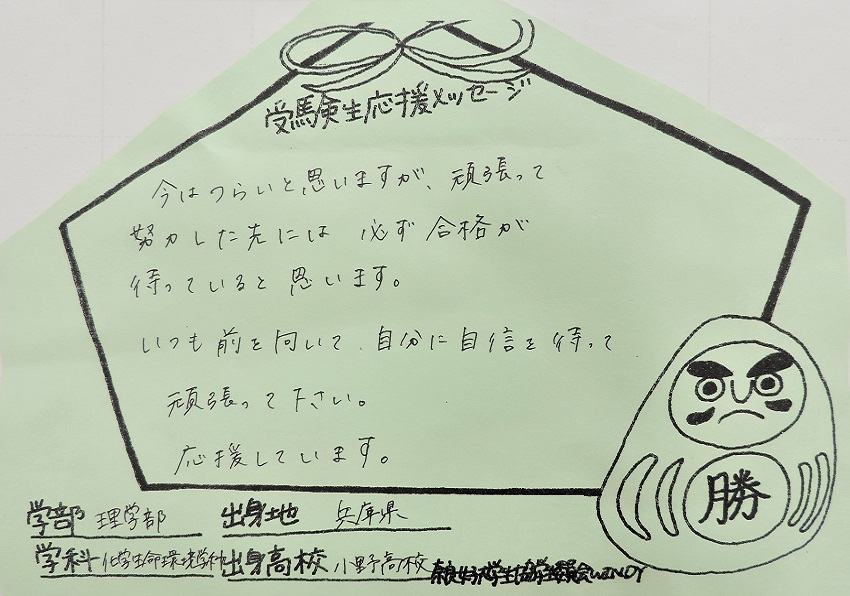 受験生応援メッセージ
今はつらいと思いますが、頑張って
努力した先には 必ず合格が
待っていると思います。
いつも前を向いて、自分に自信を待って
頑張って下さい。
応援しています。
勝
学部 理学部 出身地 兵庫県
学科 化学生命環境学科 出身高校 小野高校
奈良女子大学生協学生委員会WINDY